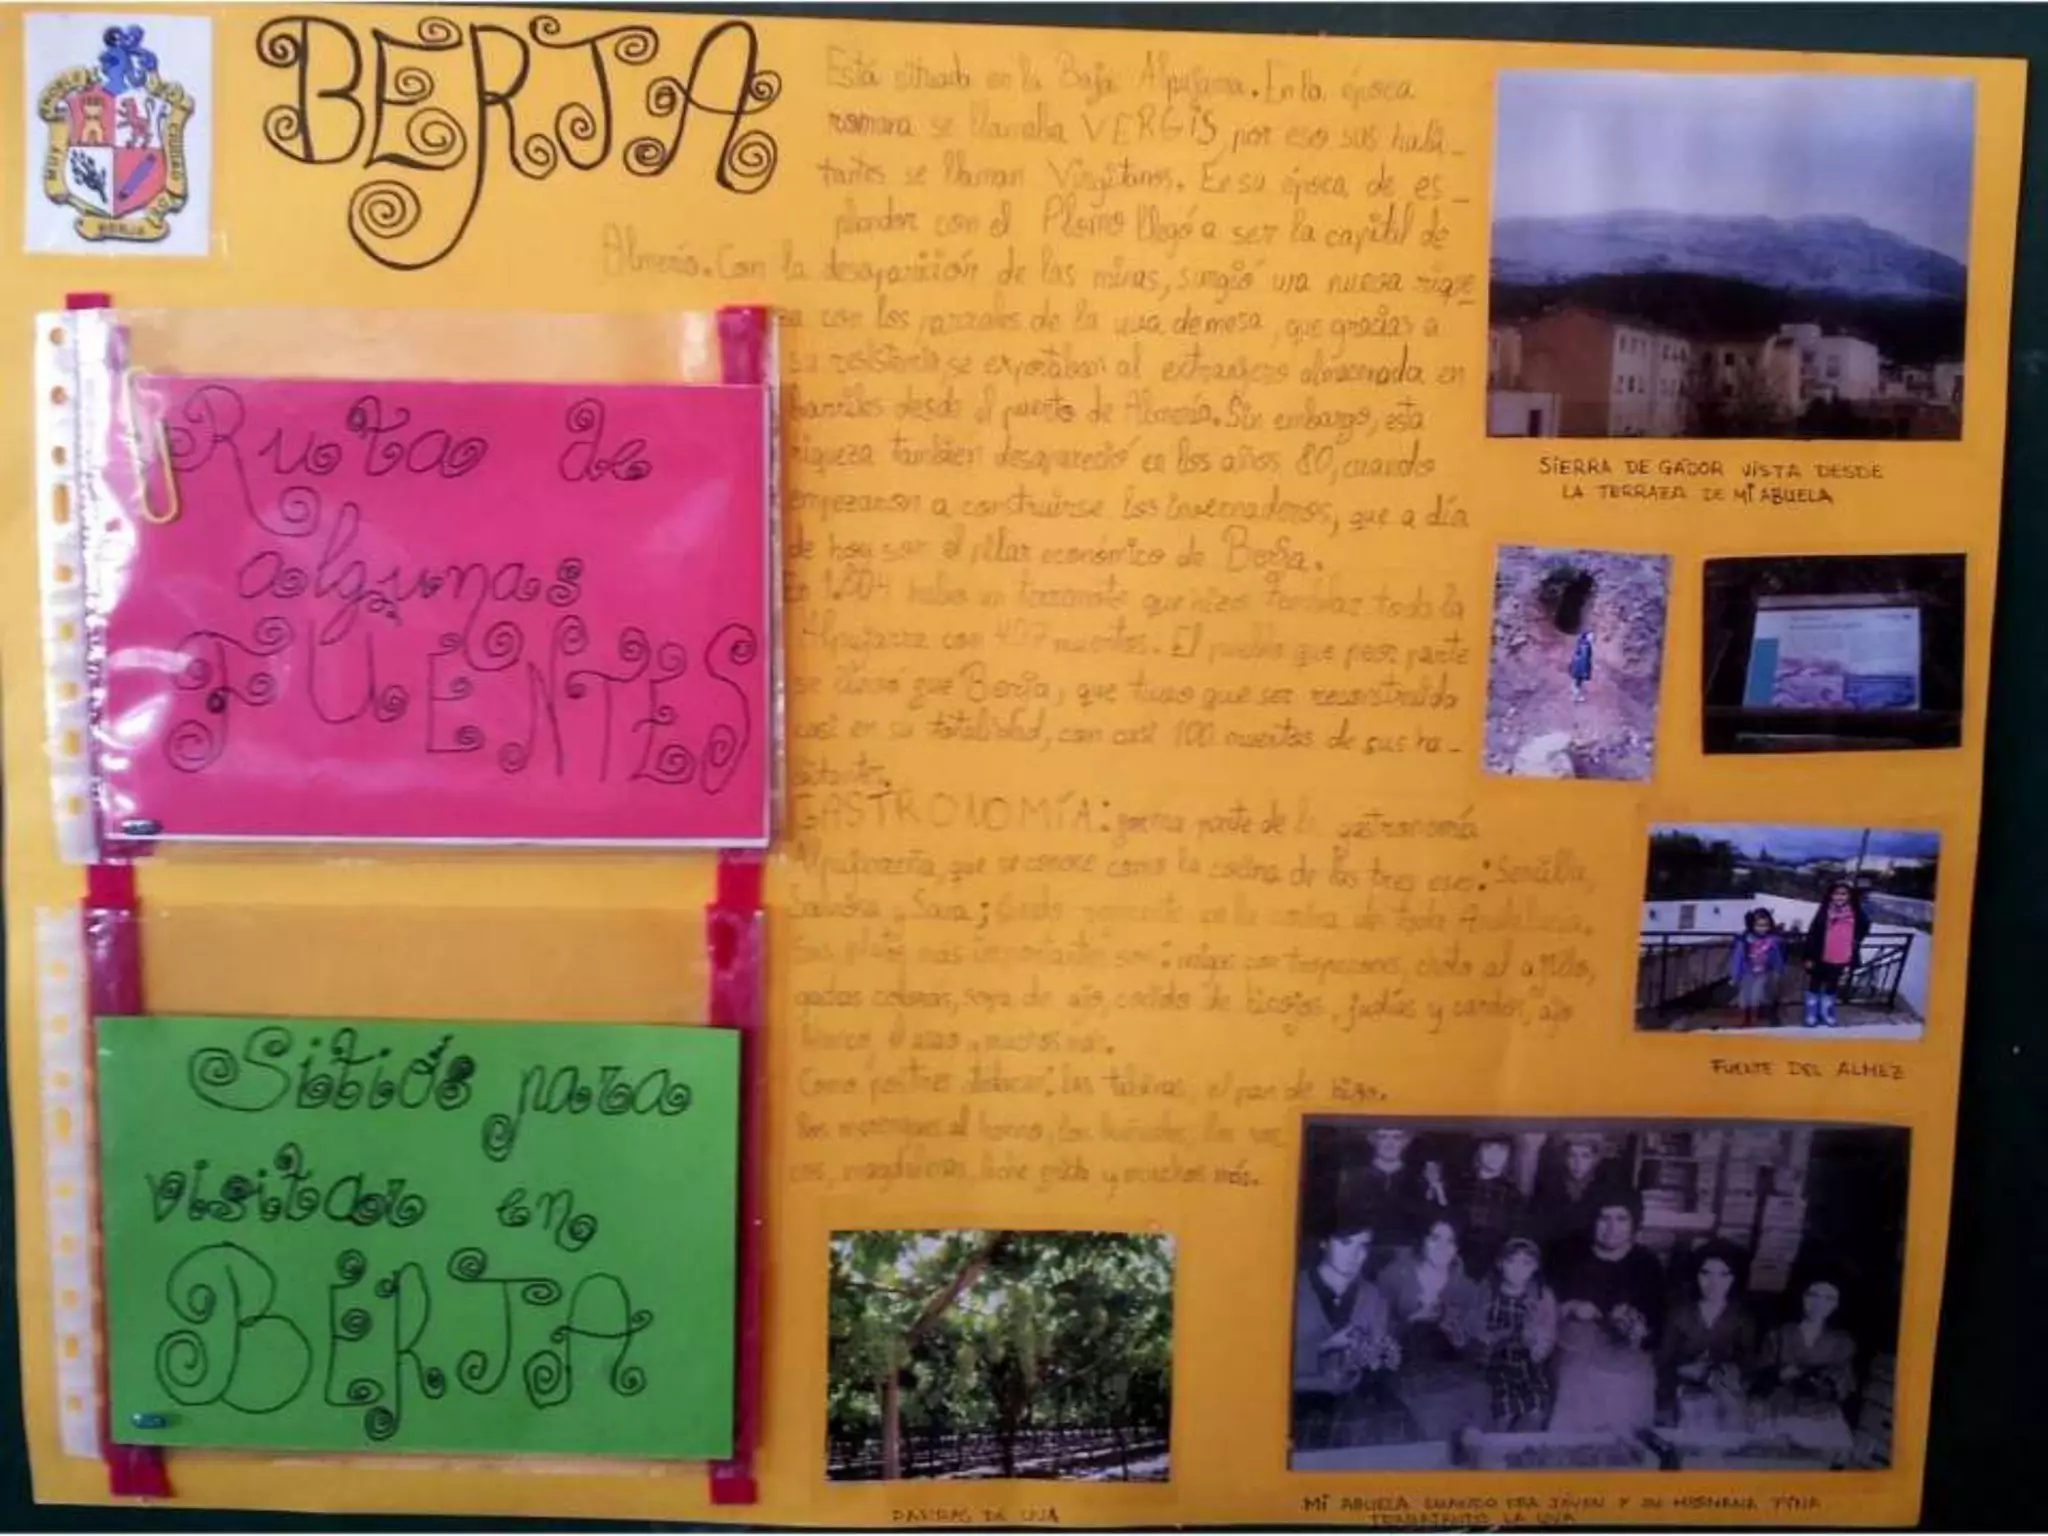 BERJA
MUY NOBLE CIUDAD
BERJA
Está situada en la Baja Alpujarra. En la época
romana se llamaba VERGIS, por eso sus habi-
tantes se llaman Virgitanos. En su época de es-
plendor con el Plomo llegó a ser la capital de
Almería. Con la desaparición de las minas, surgió una nueva rique-
za con los parrales de la uva de mesa, que gracias a
su resistencia se exportaban al extranjero almacenada en
barriles desde el puerto de Almería. Sin embargo, esta
riqueza tambien desapareció en los años 80, cuando
empezaron a construirse los invernaderos, que a día
de hoy son el pilar económico de Berja.
En 1.804 hubo un terremoto que hizo temblar toda la
Alpujarra con 407 muertos. El pueblo que peor parte
se llevó fue Berja, que tuvo que ser reconstruido
casi en su totalidad, con casi 100 muertos de sus ha-
bitantes.
GASTRONOMÍA: forma parte de la gastronomía
Alpujarreña, que se conoce como la cocina de las tres eses: Sencilla,
Sabrosa y Sana; siendo en la cocina de toda Andalucía.
Sus platos más importantes son: migas con tropezones, choto al ajillo,
gachas, sopa de ajo, cocido de hinojos, judías y cardos, ajo
blanco, y muchos más.
Como postres destacan: las el pan de higo,
los merengues al horno, los buñuelos, los ros-
cos, magdalenas, leche frita y muchos más.
Ruta de
algunas
FUENTES
Sitios para
visitar en
BERJA
SIERRA DE GÁDOR VISTA DESDE
LA TERRAZA DE MI ABUELA
FUENTE DEL ALMEZ
PARRAS DE UVA
MI ABUELA CUANDO ERA JÓVEN Y SU HERMANA TINA
TRABAJANDO LA UVA